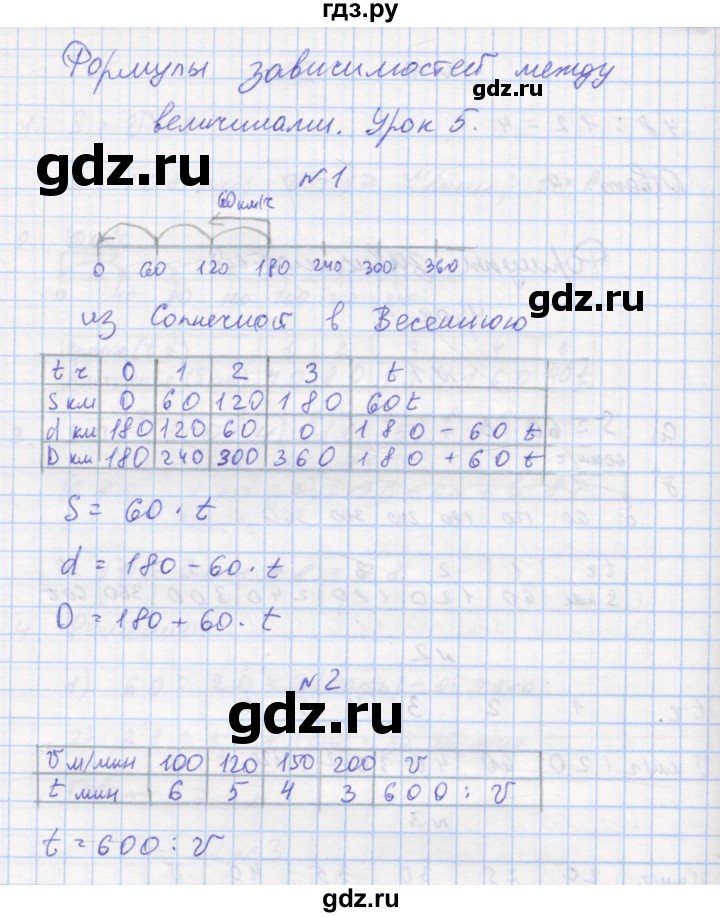 гдз.ру
Формулы зависимостей между
gdz.ru
величинами. Урок 5.
gdz.ru
№1
60 км/ч
0 60 120 180 240 300 360
из Солнечной в Весеннюю
t ч 0 1 2 3 t
S км 0 60 120 180 60t
d км 180 120 60 0 180 - 60 t
D км 180 240 300 360 180 + 60 t
S = 60 · t
d = 180 - 60 · t
D = 180 + 60 · t
№2
gdz.ru
v м/мин 100 120 150 200 v
t мин 6 5 4 3 600 : v
t = 600 : v
gdz.ru
gdz.ru